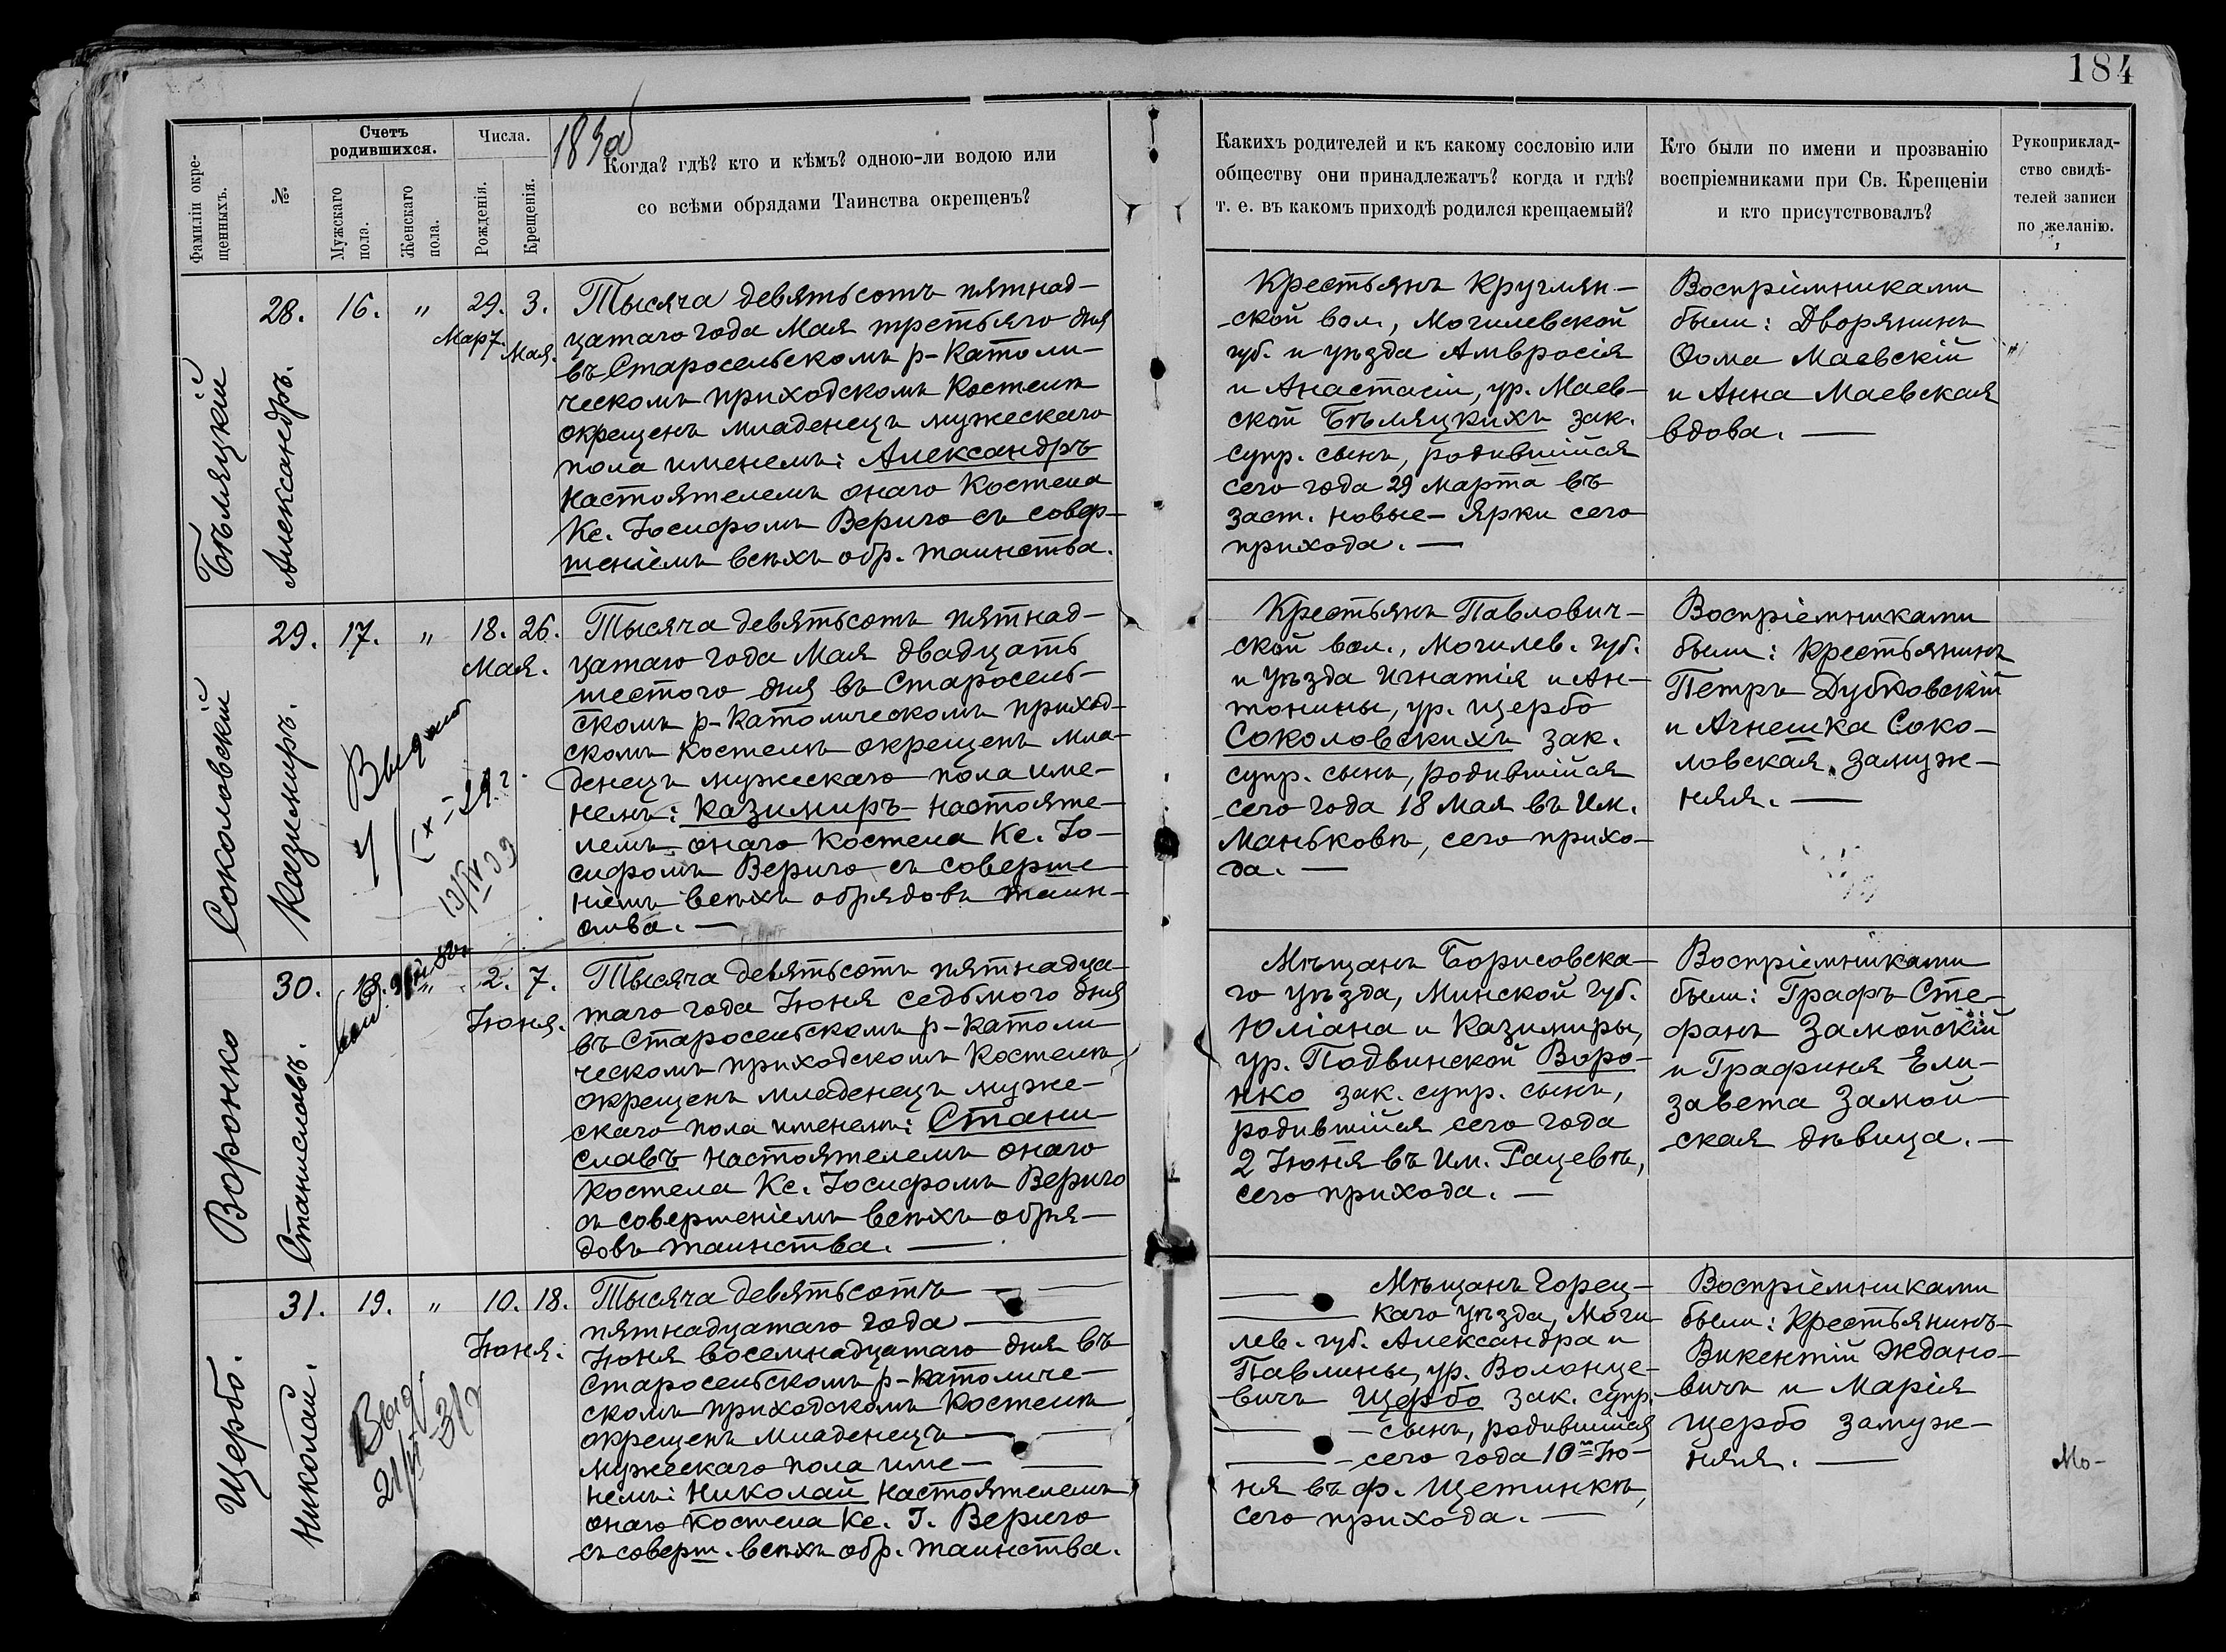 184
183об
Фамиліи окре-
щенныхъ.
№
Счетъ
родившихся.
Мужскаго
пола.
Женскаго
пола.
Числа.
Рожденія.
Крещенія.
Когда? гдѣ? кто и кѣмъ? одною-ли водою или
со всѣми обрядами Таинства окрещенъ?
Какихъ родителей и къ какому сословію или
обществу они принадлежатъ? когда и гдѣ?
т. е. въ какомъ приходѣ родился крещаемый?
Кто были по имени и прозванію
воспріемниками при Св. Крещеніи
и кто присутствовалъ?
Рукоприклад-
ство свидѣ-
телей записи
по желанію.
Бѣляцкій
Александръ.
28. 16. " 29. 3.
Март. Мая.
Тысяча девятьсотъ пятнад-
цатаго года Мая третьяго дня
въ Старосельскомъ р-Католи-
ческомъ приходскомъ Костелѣ
окрещенъ младенецъ мужескаго
пола именемъ: Александръ
Настоятелемъ онаго Костела
Кс. Іосифомъ Веричо съ совер-
шеніемъ всѣхъ обр. таинства.
Крестьянъ Круглян-
ской вол., Могилевской
губ. и уѣзда Амвросія
и Анастасіи, ур. Маев-
ской Бѣляцкихъ зак.
супр. сынъ, родившійся
сего года 29 Марта въ
заст. Новые-Ярки сего
прихода. —
Воспріемниками
были: Дворянинъ
Ѳома Маевскій
и Анна Маевская
вдова. —
Соколовскій
Казимиръ.
29. 17. " 18. 26.
Мая.
Тысяча девятьсотъ пятнад-
цатаго года Мая двадцать
шестого дня въ Старосель-
скомъ р-Католическомъ приход-
скомъ Костелѣ окрещенъ мла-
денецъ мужескаго пола име-
немъ: Казимиръ Настояте-
лемъ онаго Костела Кс. Іо-
сифомъ Веричо съ соверше-
ніемъ всѣхъ обрядовъ таин-
ства. —
Крестьянъ Павлович-
ской вол., Могилев. губ.
и уѣзда Игнатія и Ан-
тонины, ур. Щербо
Соколовскихъ зак.
супр. сынъ, родившійся
сего года 18 Мая въ Им.
Маньковѣ, сего прихо-
да. —
Воспріемниками
были: Крестьянинъ
Петръ Дубковскій
и Агнешка Соко-
ловская замуж-
няя. —
Воронко
Станиславъ.
30. 18. " 2. 7.
Іюня.
Тысяча девятьсотъ пятнадца-
таго года Іюня седьмого дня
въ Старосельскомъ р-Католи-
ческомъ приходскомъ Костелѣ
окрещенъ младенецъ муже-
скаго пола именемъ: Стани-
славъ Настоятелемъ онаго
Костела Кс. Іосифомъ Веричо
съ совершеніемъ всѣхъ обря-
довъ таинства. —
Мѣщанъ Борисовска-
го уѣзда, Минской губ.
Юліана и Казимиры,
ур. Подвинской Воро-
нко зак. супр. сынъ,
родившійся сего года
2 Іюня въ Им. Рацевѣ,
сего прихода. —
Воспріемниками
были: Графъ Сте-
фанъ Замойскій
и Графиня Ели-
завета Замой-
ская дѣвица. —
Щербо.
Николай.
31. 19. " 10. 18.
Іюня.
Тысяча девятьсотъ —
пятнадцатаго года —
Іюня восемнадцатаго дня въ
Старосельскомъ р-Католиче-
скомъ приходскомъ Костелѣ
окрещенъ младенецъ —
мужескаго пола име-
немъ: Николай Настоятелемъ
онаго Костела Кс. І. Веричо
съ соверш. всѣхъ обр. таинства.
Мѣщанъ Горец-
каго уѣзда, Моги-
лев. губ. Александра и
Павлины, ур. Волонце-
вичъ Щербо зак. супр.
— сынъ, родившійся
— сего года 10го Ію-
ня въ ф. Щетинкѣ,
сего прихода. —
Воспріемниками
были: Крестьянинъ
Викентій Ждано-
вичъ и Марія
Щербо замуж-
няя. —
Мо-